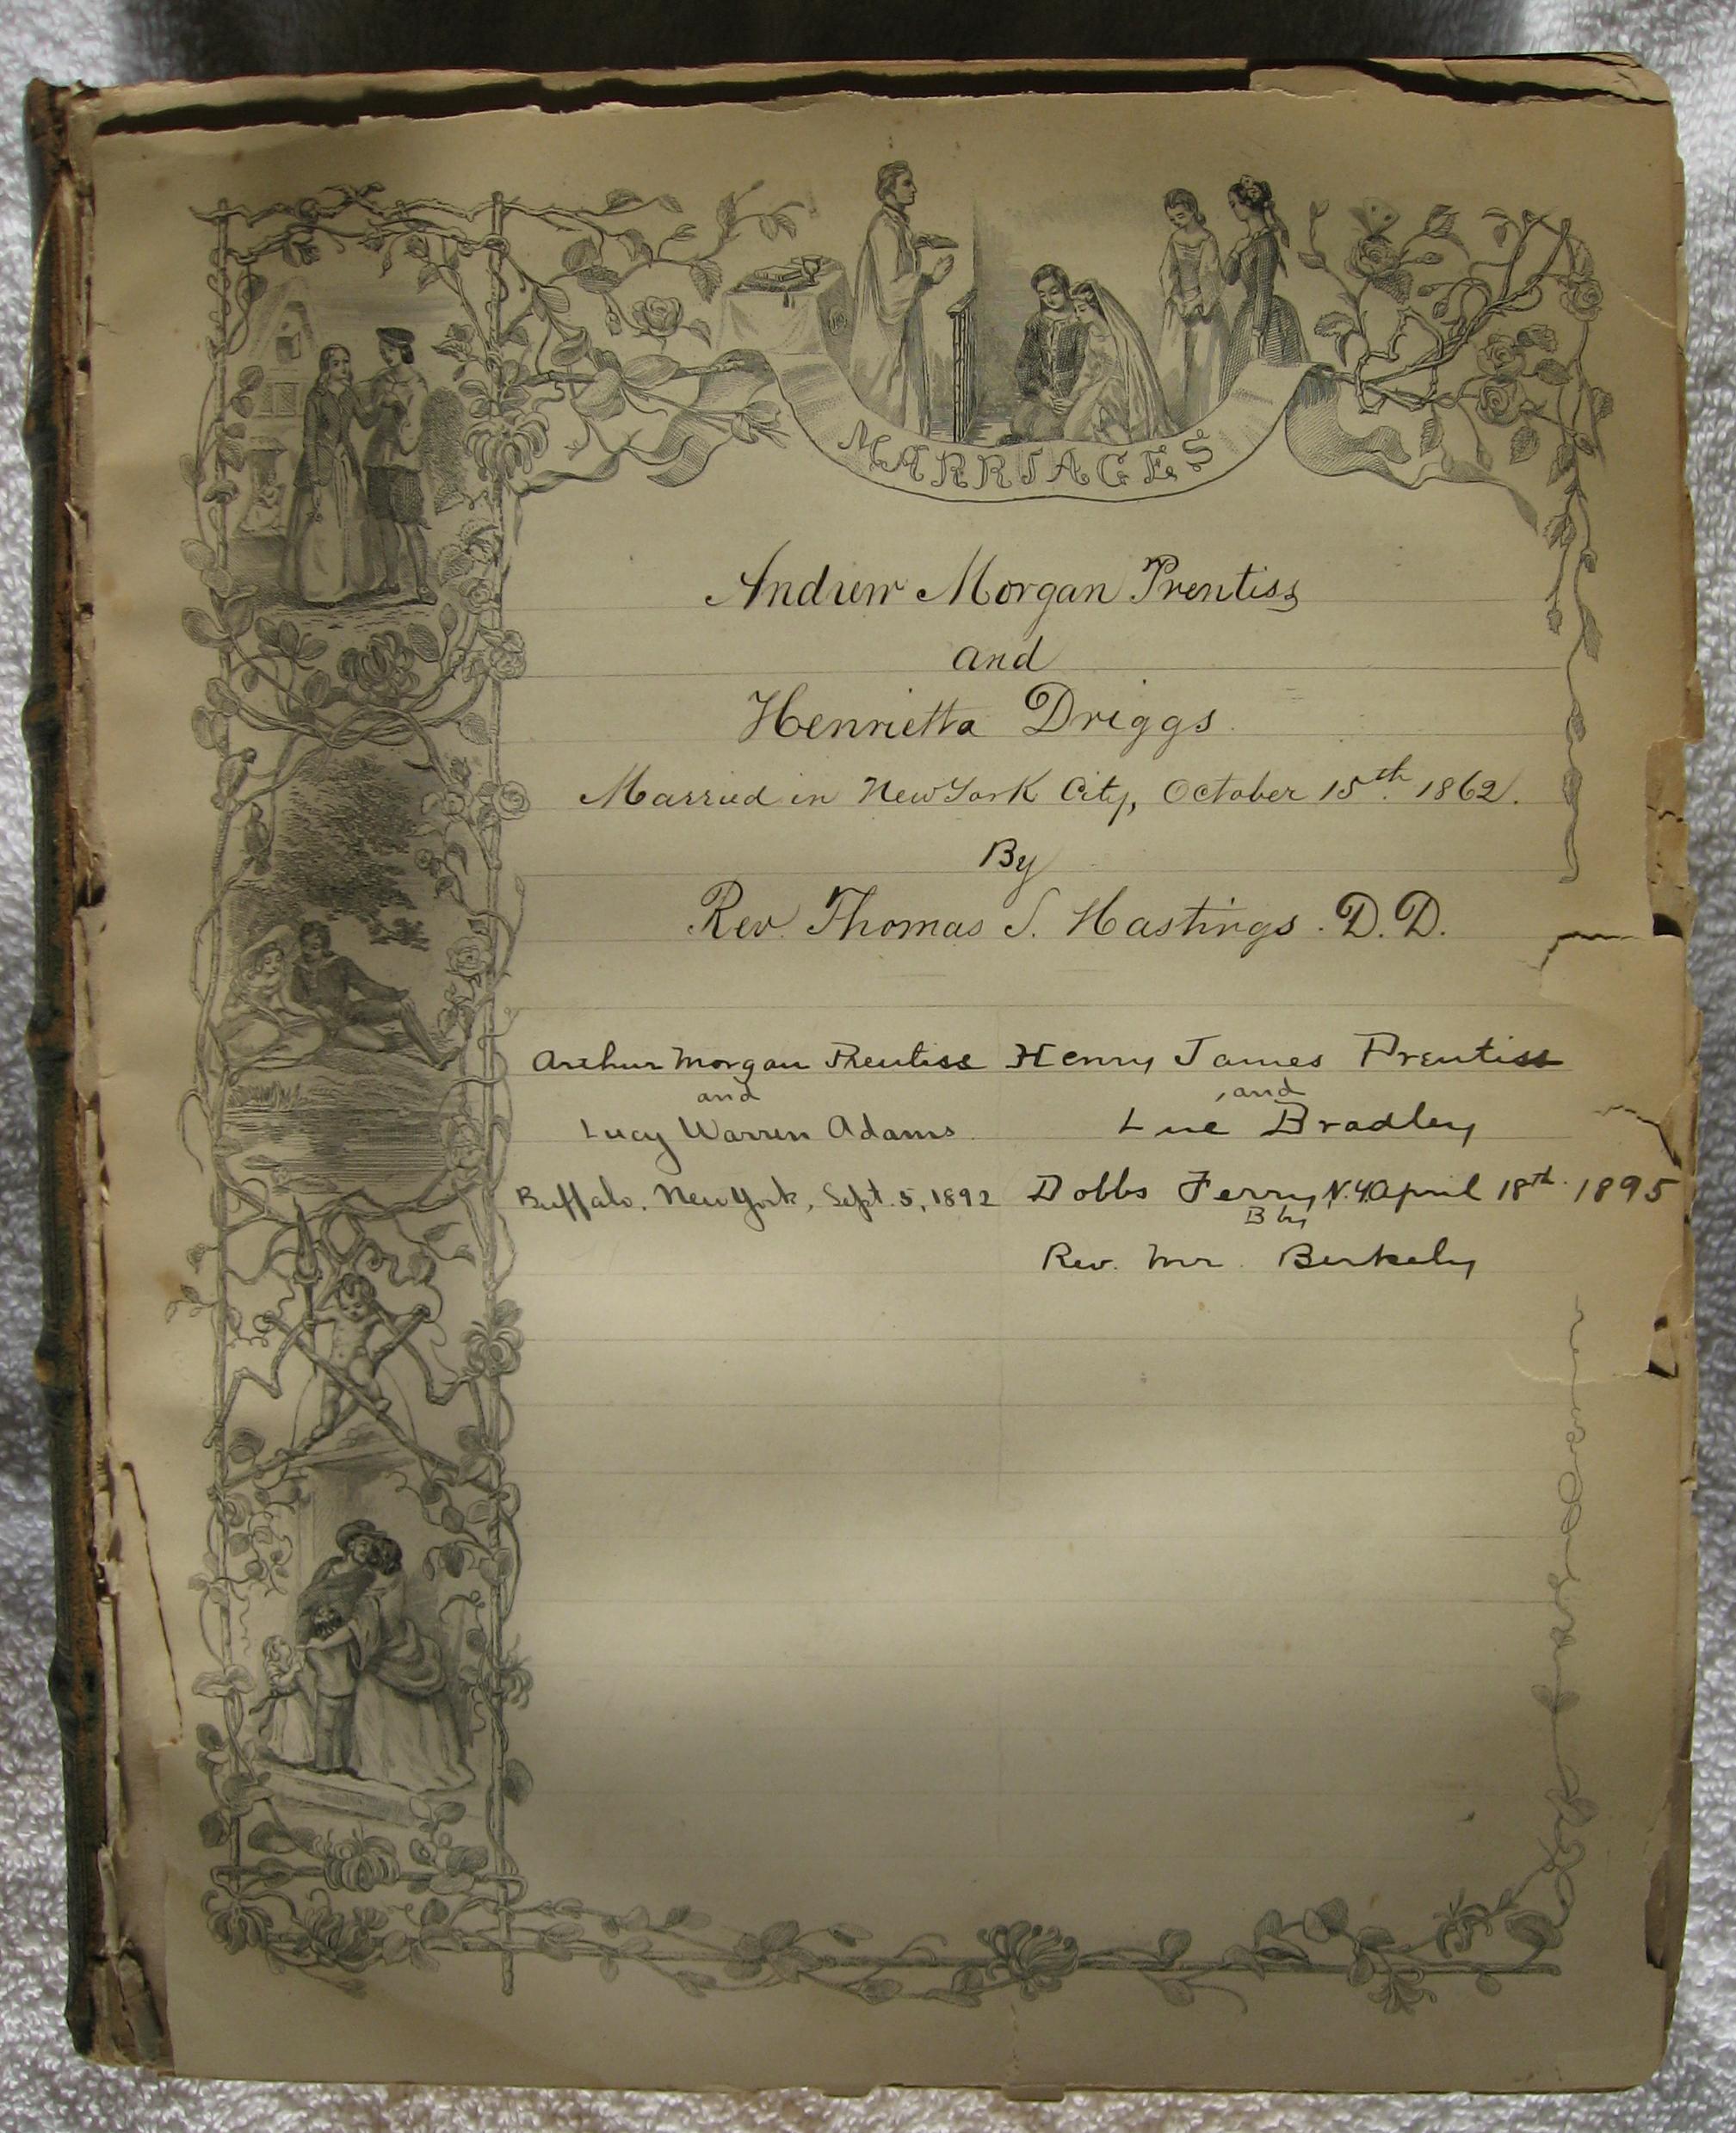 MARRIAGES
Andrew Morgan Prentiss
and
Henrietta Driggs
Married in New York City, October 15th 1862.
By
Rev. Thomas S. Hastings. D.D.
Arthur Morgan Prentiss
and
Lucy Warren Adams
Buffalo, New York, Sept. 5, 1892
Henry James Prentiss
and
Lue Bradley
Dobbs Ferry, N.Y. April 18th 1895
By
Rev. Mr. Berkely